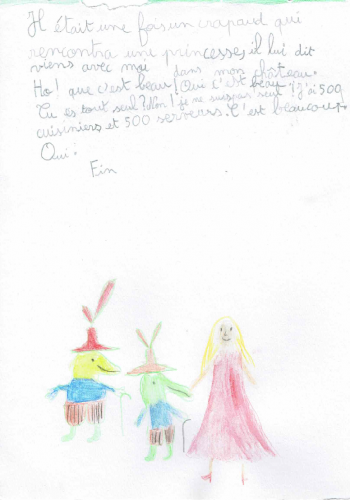 Il était une fois un crapaud qui
rencontra une princesse, il lui dit
viens avec moi dans mon château.
Ho! que c'est beau! Oui c'est beau
Tu es tout seul? Non! je ne suis pas seul! J'ai 500
cuisiniers et 500 serveurs. C'est beaucoup.
Oui!
Fin